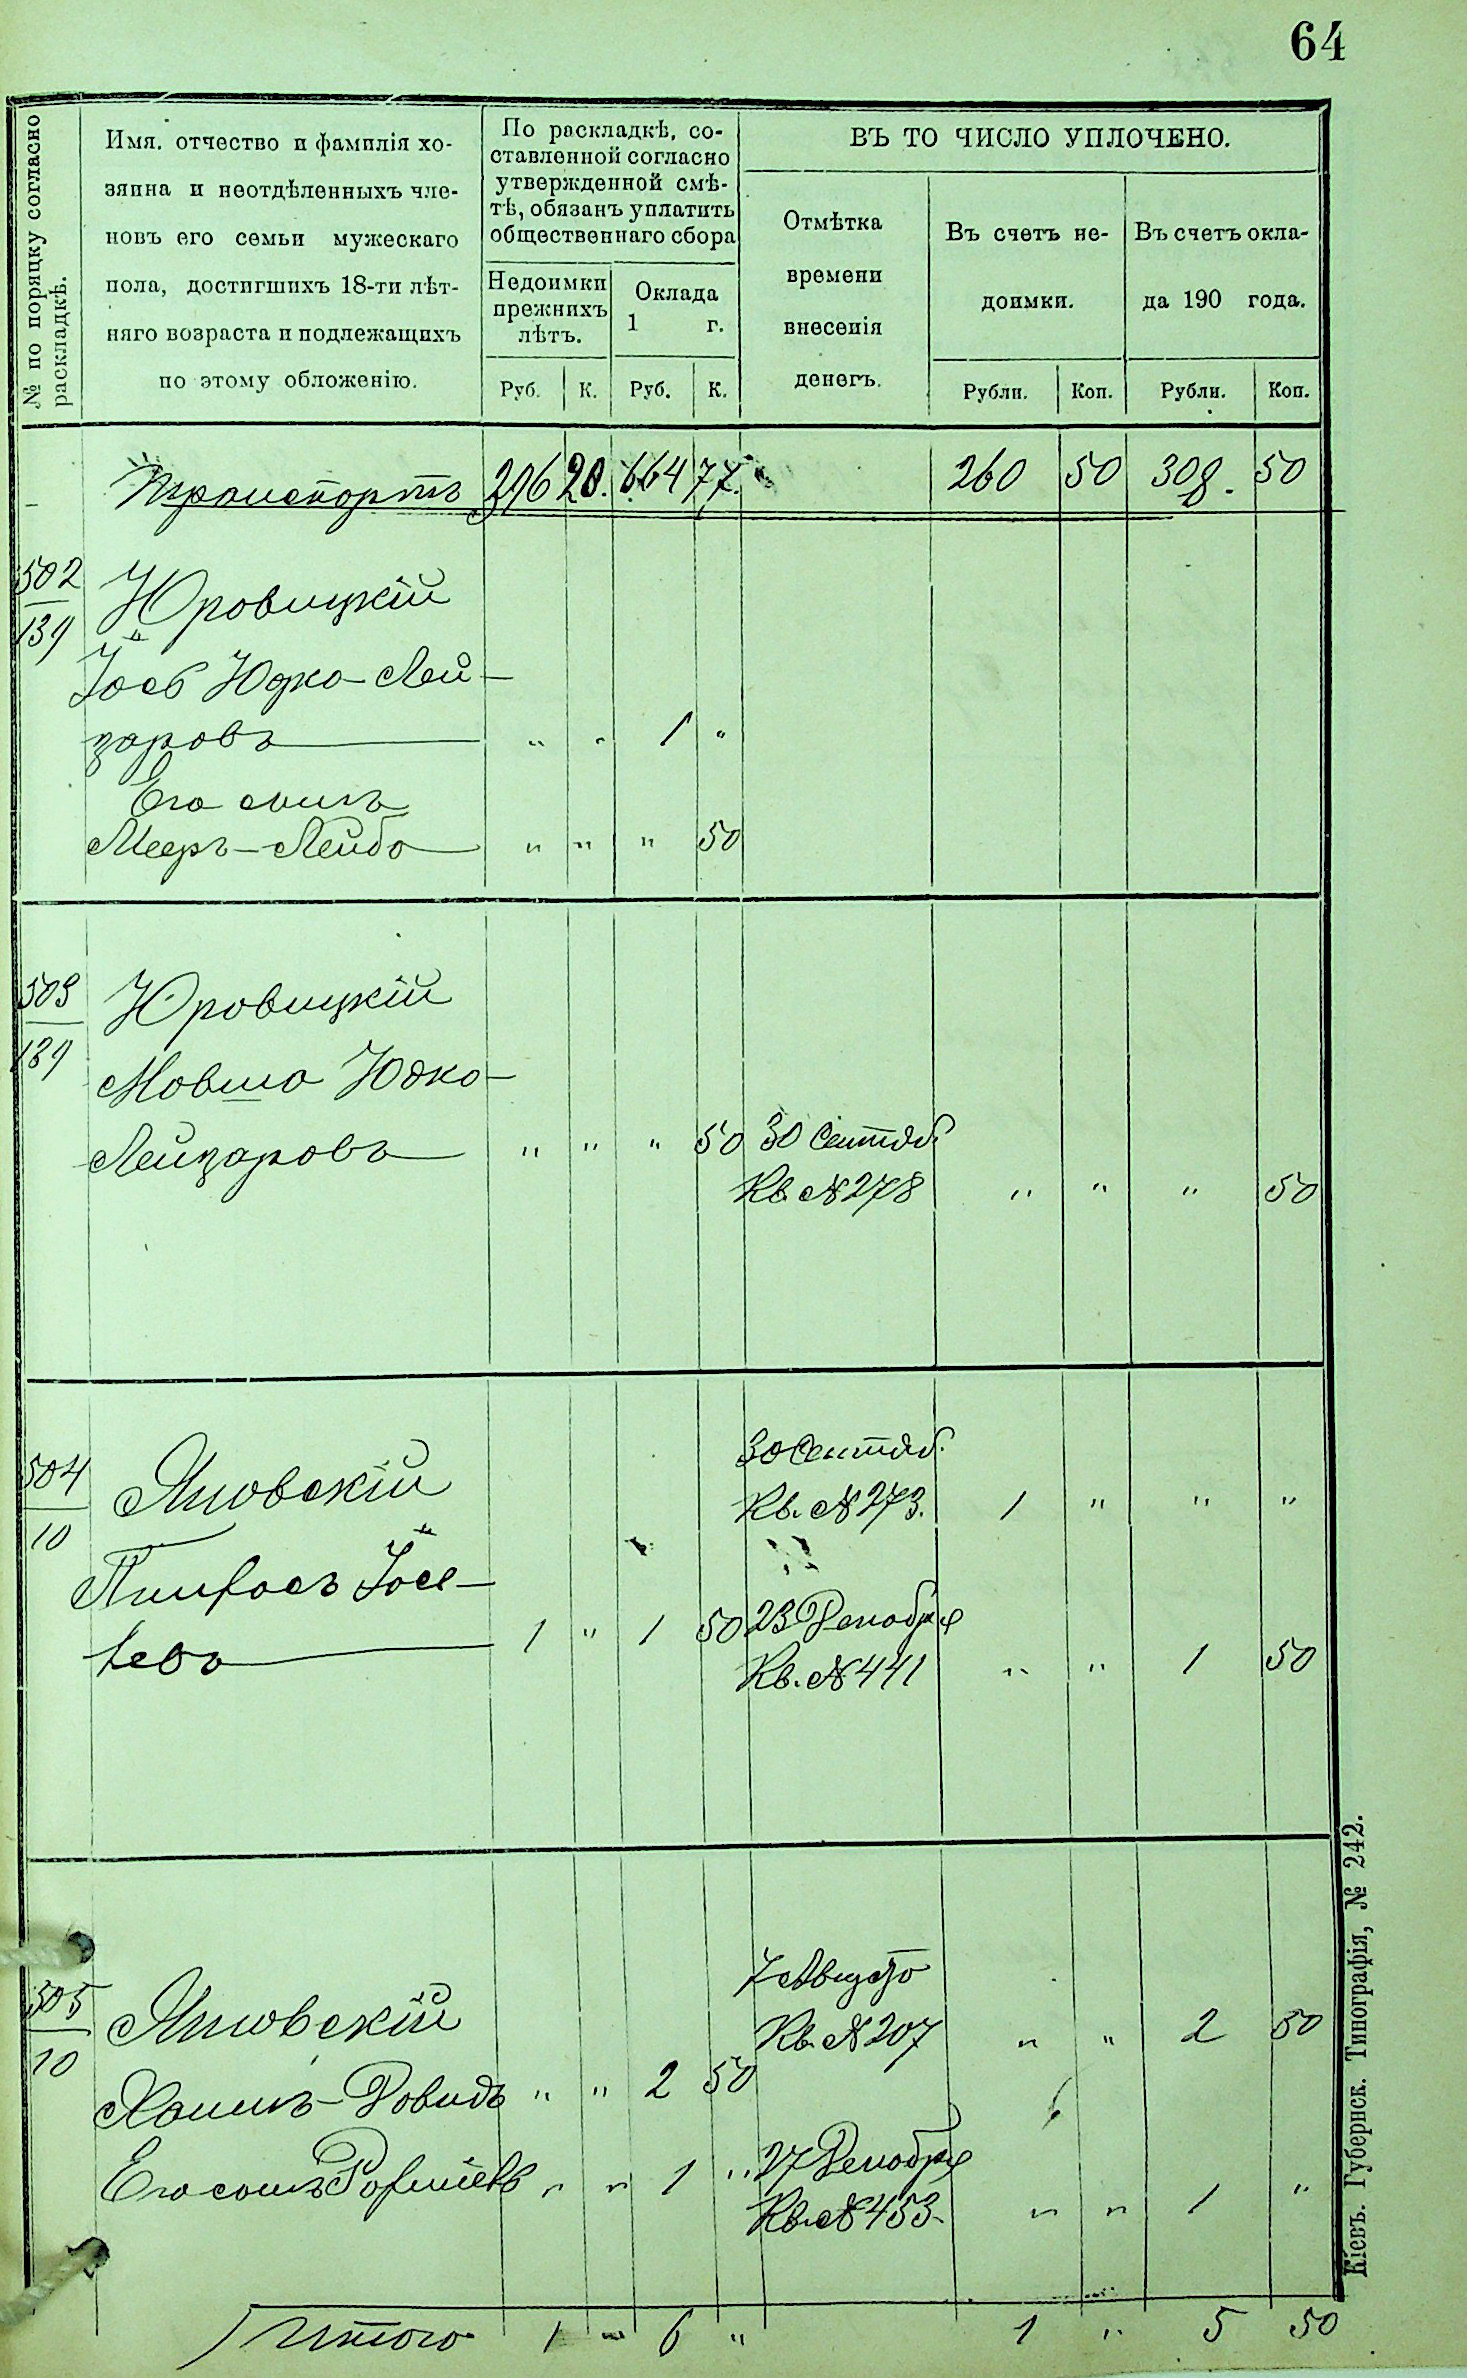 64
№ по поряцку согласно раскладкѣ.
Имя. отчество и фамилія хо-
зяина и неотдѣленныхъ чле-
новъ его семьи мужескаго
пола, достигшихъ 18-ти лѣт-
няго возраста и подлежащихъ
по этому обложенію.
По раскладкѣ, со-
ставленной согласно
утвержденной смѣ-
тѣ, обязанъ уплатить
общественнаго сбора
Недоимки
прежнихъ
лѣтъ.
Оклада
1 г.
Руб. К. Руб. К.
ВЪ ТО ЧИСЛО УПЛОЧЕНО.
Отмѣтка
времени
внесенія
денегъ.
Въ счетъ не-
доимки.
Въ счетъ окла-
да 190 года.
Рубли. Коп. Рубли. Коп.
Транспортъ 20. 664 77. 260 50 308. 50
502
139
Юровицкій
Іось Юдко-Лей-
заровъ " " 1 "
Его сынъ
Мееръ-Лейба " " " 50
503
139
Юровицкій
Мовша Юдко-
Лейзаровъ " " " 50 30 Сентяб.
Кв. № 278 " " " 50
504
10
Яновскій
30 Сентяб.
Кв. № 273. 1 " " "
Пинхосъ Іосе-
левъ 1 " 1 50 23 Декабря
Кв. № 441 " " 1 50
505
10
Яновскій
7 Августа
Кв. № 207 " " 2 50
Хаимъ-Довидъ " " 2 50
Его сынъ " " 1 " 27 Декабря
Кв. № 453. " " 1 "
Итого 1 " 6 " 1 " 5 50
Кіевъ. Губернск. Типографія, № 242.